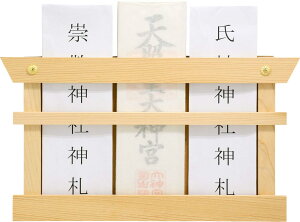 氏神神社神札
天照皇大神宮
崇敬神社神札